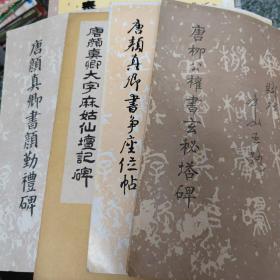 唐顏真卿書顏勤禮碑
唐顏真卿大字麻姑仙壇記碑
唐顏真卿書爭座位帖
唐柳公權書玄秘塔碑